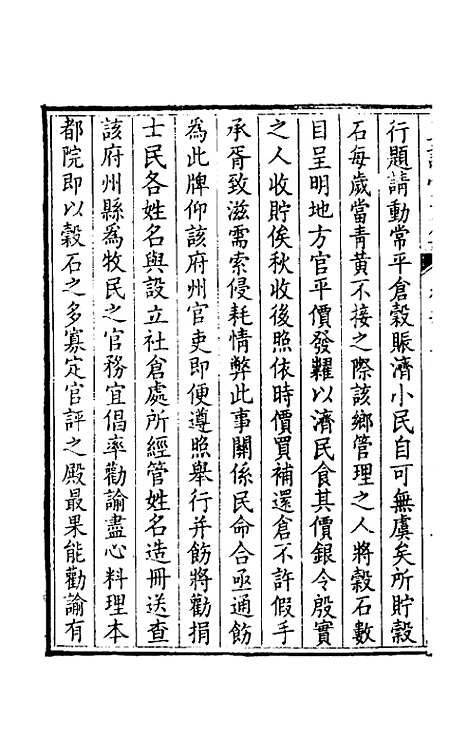 行題請動常平倉穀賑濟小民自可無虞矣所貯穀
石每歲當青黃不接之際該鄉管理之人將穀石數
目呈明地方官平價發糶以濟民食其價銀令殷實
之人收貯俟秋收後照依時價買補還倉不許假手
承胥致滋需索侵耗情弊此事關係民命合亟通飭
為此牌仰該府州官吏即便遵照舉行并飭將勸捐
士民各姓名與設立社倉處所經管姓名造冊送查
該府州縣為牧民之官務宜倡率勸諭盡心料理本
都院即以穀石之多寡定官評之殿最果能勸諭有